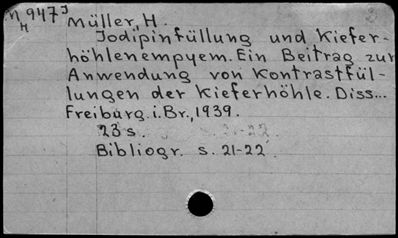 M947J
H
Müller, H.
Jodipinfüllung und Kiefer-
höhlenempyem. Ein Beitrag zur
Anwendung von Kontrastfül-
lungen der Kieferhöhle. Diss...
Freiburg. i. Br., 1939.
23 s.
Bibliogr. s. 21-22